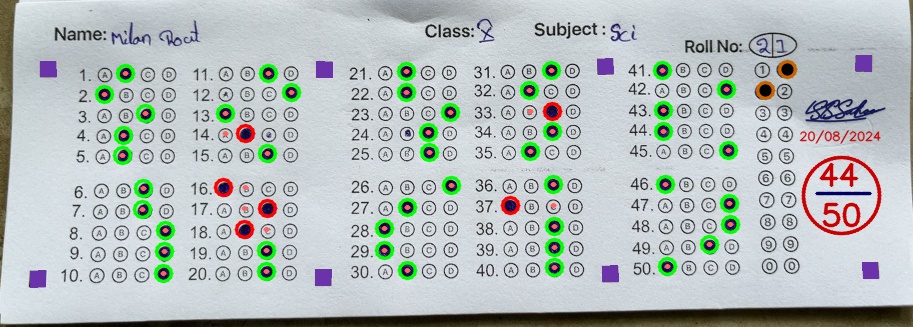 Name: Milan Rout
Class: X
Subject: Sci
Roll No: 2 1
1. A C D
2. B C D
3. A B D
4. A C D
5. A C D
6. A B D
7. A B D
8. A B C
9. A B C
10. A B C
11. A B D
12. A B C
13. B C D
14. A C D
15. A B D
16. B C D
17. A B D
18. A C D
19. A B D
20. A B D
21. A C D
22. A C D
23. A B C
24. A B D
25. A B D
26. A B C
27. A C D
28. B C D
29. B C D
30. A C D
31. A B D
32. A C D
33. A B D
34. A B D
35. A C D
36. A B D
37. B C D
38. A B D
39. A B D
40. A B D
41. B C D
42. A B C
43. B C D
44. B C D
45. A B C
46. B C D
47. A B C
48. A B C
49. A B D
50. B C D
1
2
3 3
4 4
5 5
6 6
7 7
8 8
9 9
0 0
20/08/2024
44
50